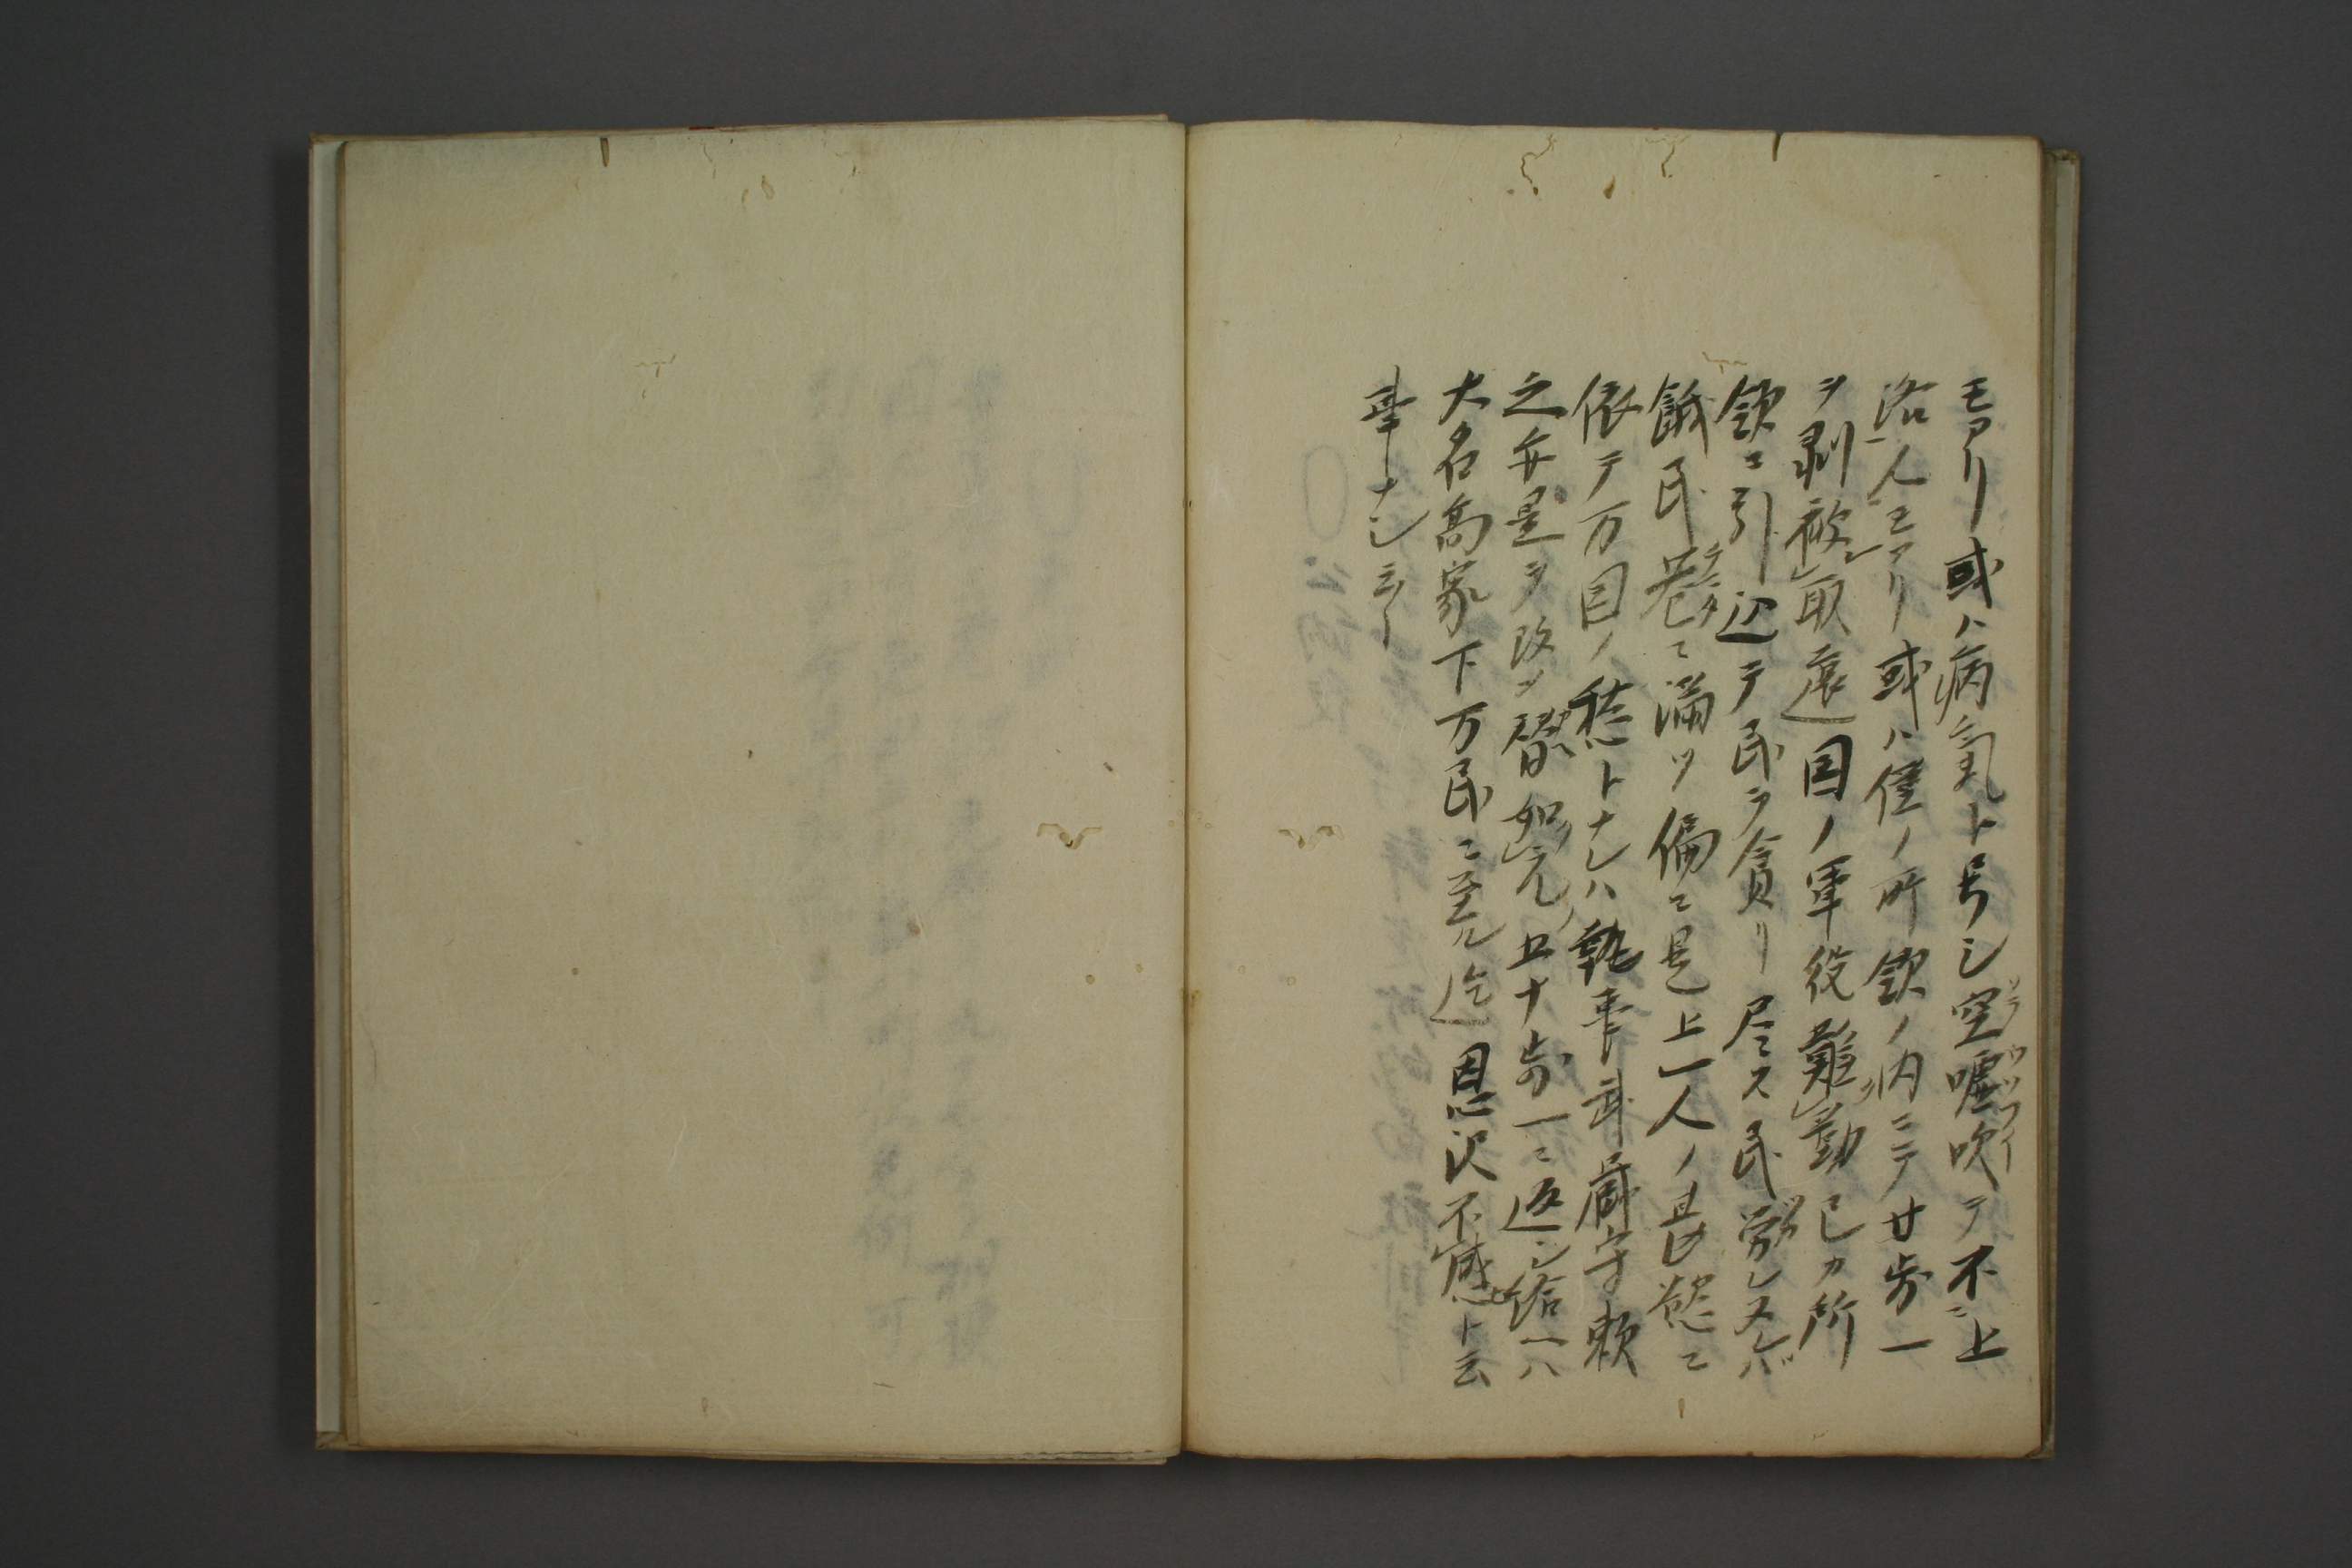 モアリ或ハ病氣ト号シ空嘘吹テ不ニ上
洛一人モアリ或ハ僅ノ所領ノ内ニテ廿分一
ヲ剥被取遠国ノ軍役難勤己カ所
領ニ引込テ民ヲ貪リ尽ス民労レヌレバ
餓民巷ニ満ツ偏ニ是上一人ノ長慾ニ
依テ万国ノ愁トナレハ執事武蔵守頼
之弁是ヲ改メ替如元五十分一ニ返シ給ヘハ
大名高家下万民ニ至ル迄恩沢不感ト云
事ナシ云々